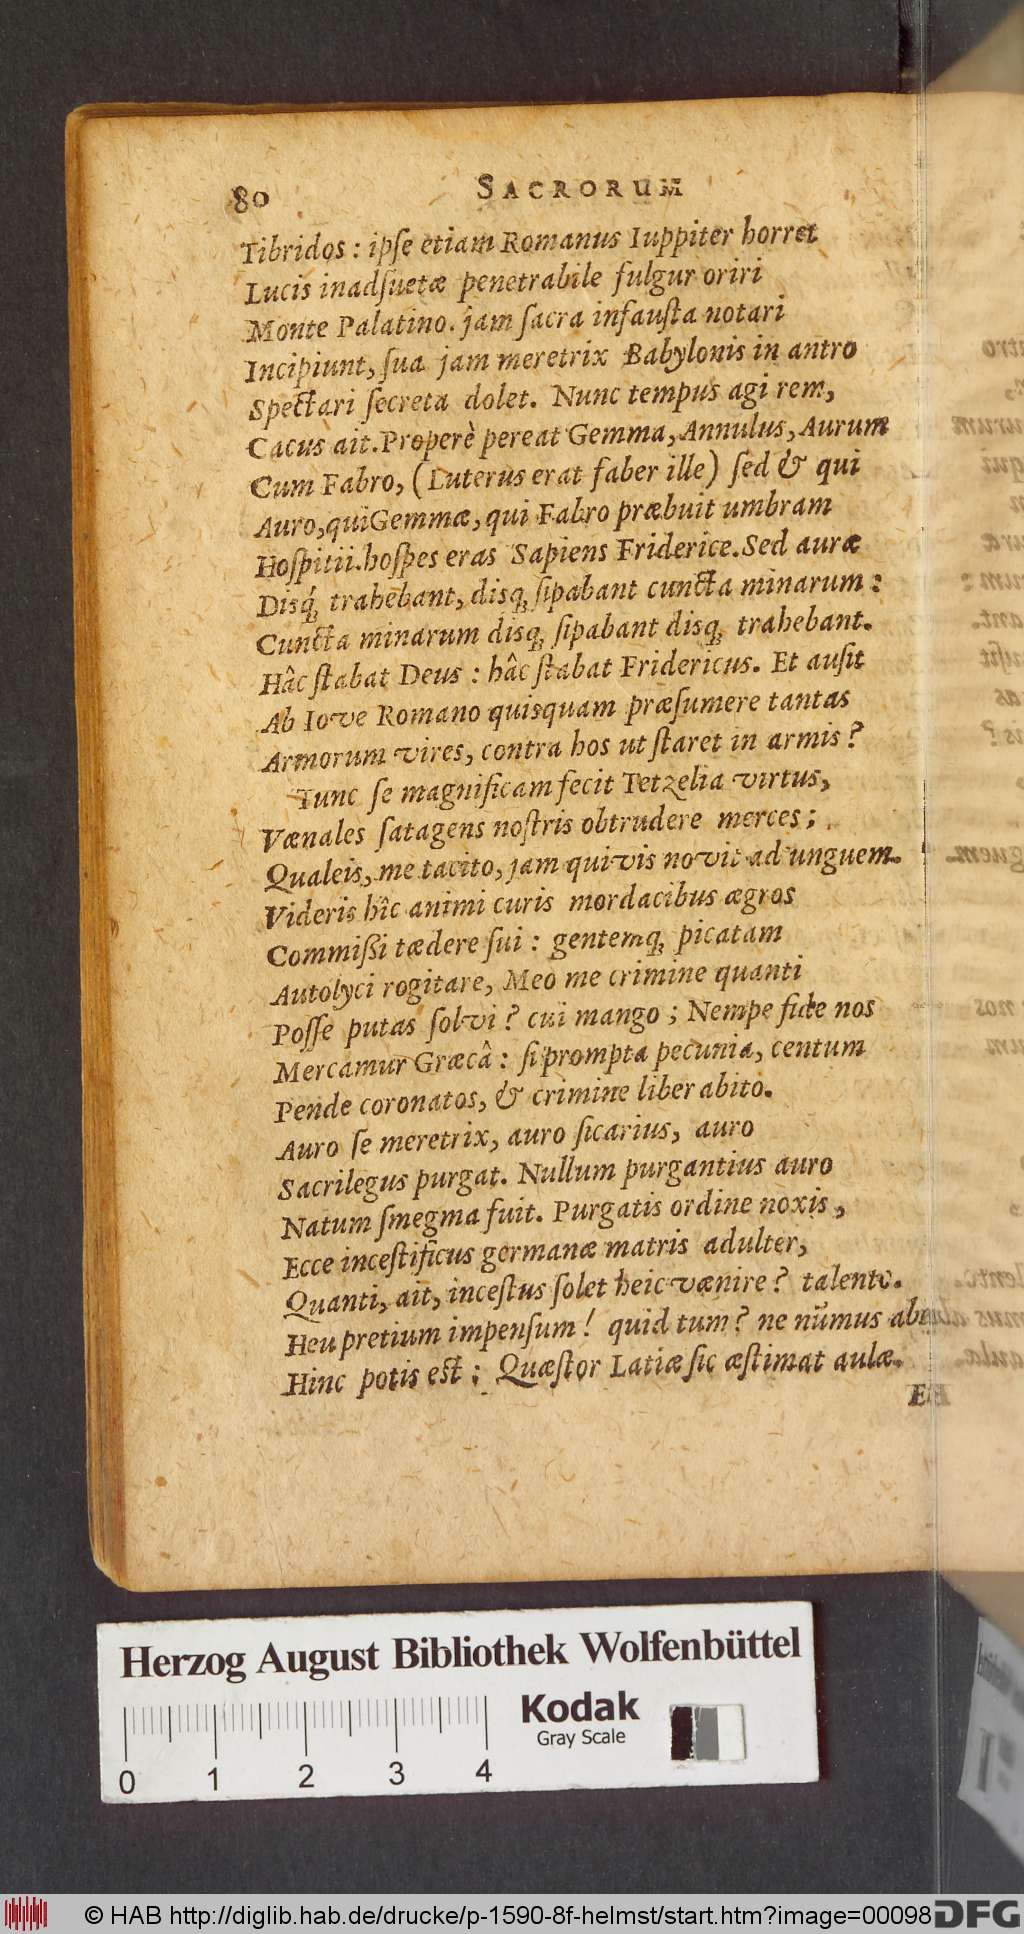 80 SACRORUM
Tibridos : ipſe etiam Romanus Iuppiter horret
Lucis inadſuetæ penetrabile fulgur oriri
Monte Palatino. jam ſacra infauſta notari
Incipiunt, ſua jam meretrix Babylonis in antro
Spectari ſecreta dolet. Nunc tempus agi rem,
Cacus ait. Properè pereat Gemma, Annulus, Aurum
Cum Fabro, (Luterus erat faber ille) ſed & qui
Auro, qui Gemmæ, qui Fabro præbuit umbram
Hoſpitii. hoſpes eras Sapiens Friderice. Sed auræ
Disq́; trahebant, disq; ſipabant cuncta minarum :
Cuncta minarum disq; ſipabant disq; trahebant.
Hâc ſtabat Deus : hâc ſtabat Fridericus. Et auſit
Ab Iove Romano quisquam præſumere tantas
Armorum vires, contra hos ut ſtaret in armis ?
Tunc ſe magnificam fecit Tetzelia virtus,
Vænales ſatagens noſtris obtrudere merces ;
Qualeis, me tacito, jam quivis novit ad unguem.
Videris hîc animi curis mordacibus ægros
Commiſſi tædere ſui : gentemq; picatam
Autolyci rogitare, Meo me crimine quanti
Poſſe putas ſolvi ? cui mango ; Nempe fide nos
Mercamur Græcâ : ſi prompta pecunia, centum
Pende coronatos, & crimine liber abito.
Auro ſe meretrix, auro ſicarius, auro
Sacrilegus purgat. Nullum purgantius auro
Natum ſmegma fuit. Purgatis ordine noxis,
Ecce inceſtificus germanæ matris adulter,
Quanti, ait, inceſtus ſolet heic vænire ? talento.
Heu pretium impenſum ! quid tum ? ne nūmus
Hinc potis eſt ; Quæſtor Latiæ ſic æſtimat aulæ.
Herzog August Bibliothek Wolfenbüttel
Kodak
Gray Scale
0 1 2 3 4
© HAB http://diglib.hab.de/drucke/p-1590-8f-helmst/start.htm?image=00098
DFG